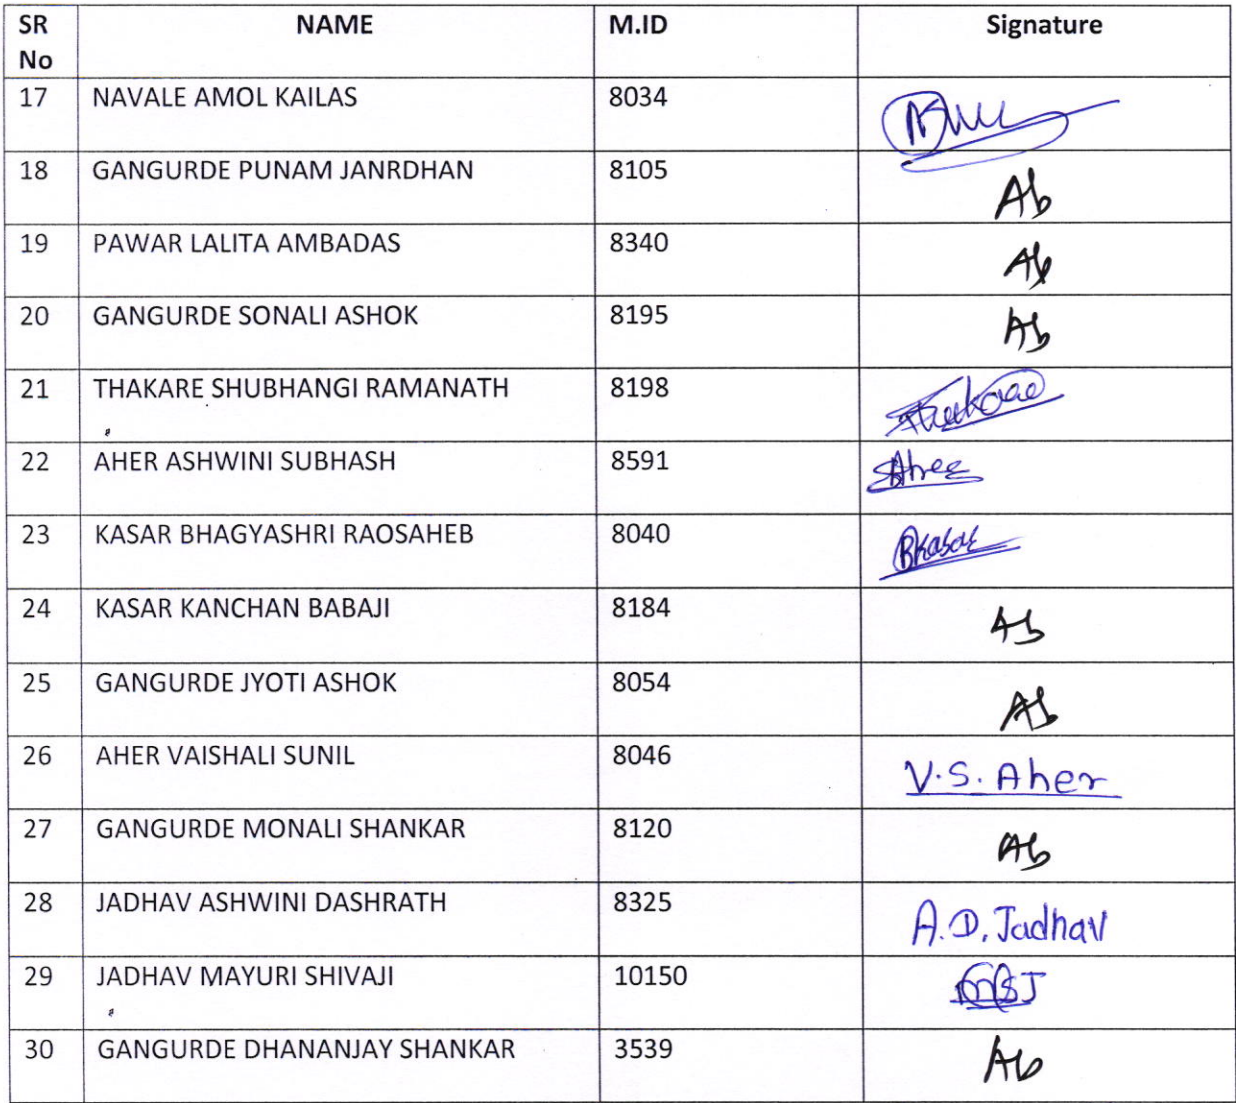 SR No NAME M.ID Signature
17 NAVALE AMOL KAILAS 8034
18 GANGURDE PUNAM JANRDHAN 8105 Ab
19 PAWAR LALITA AMBADAS 8340 Ab
20 GANGURDE SONALI ASHOK 8195 Ab
21 THAKARE SHUBHANGI RAMANATH 8198
22 AHER ASHWINI SUBHASH 8591
23 KASAR BHAGYASHRI RAOSAHEB 8040 BKasar
24 KASAR KANCHAN BABAJI 8184 Ab
25 GANGURDE JYOTI ASHOK 8054 Ab
26 AHER VAISHALI SUNIL 8046 V.S. Aher
27 GANGURDE MONALI SHANKAR 8120 Ab
28 JADHAV ASHWINI DASHRATH 8325 A.D. Jadhav
29 JADHAV MAYURI SHIVAJI 10150 MSJ
30 GANGURDE DHANANJAY SHANKAR 3539 Ab